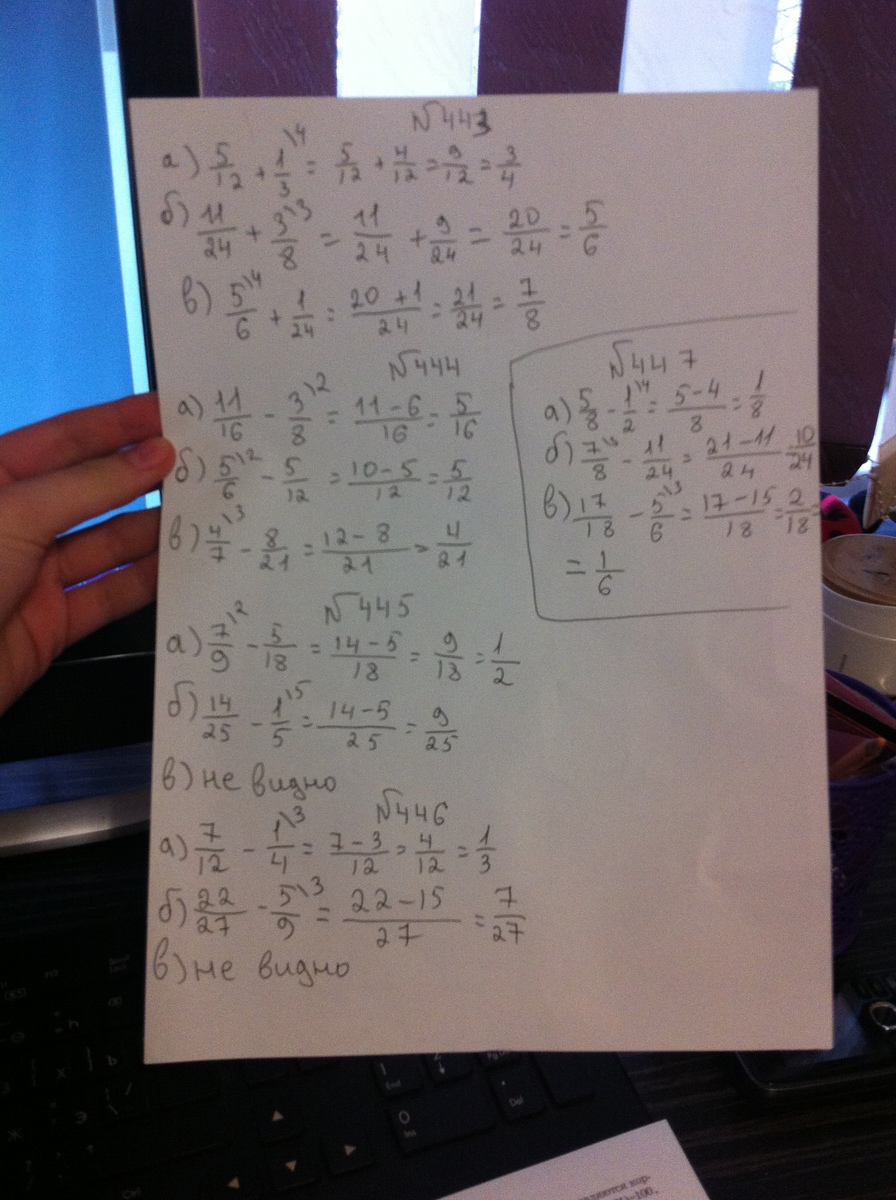 №443
а) 5/12 + 1\4/3 = 5/12 + 4/12 = 9/12 = 3/4
б) 11/24 + 3\3/8 = 11/24 + 9/24 = 20/24 = 5/6
в) 5\4/6 + 1/24 = 20+1/24 = 21/24 = 7/8
№444
а) 11/16 - 3\2/8 = 11-6/16 = 5/16
б) 5\2/6 - 5/12 = 10-5/12 = 5/12
в) 4\3/7 - 8/21 = 12-8/21 = 4/21
№445
а) 7\2/9 - 5/18 = 14-5/18 = 9/18 = 1/2
б) 14/25 - 1\5/5 = 14-5/25 = 9/25
в) не видно
№446
а) 7/12 - 1\3/4 = 7-3/12 = 4/12 = 1/3
б) 22/27 - 5\3/9 = 22-15/27 = 7/27
в) не видно
№447
а) 5/8 - 1\4/2 = 5-4/8 = 1/8
б) 7\3/8 - 11/24 = 21-11/24 = 10/24
в) 17/18 - 5\3/6 = 17-15/18 = 2/18 =
= 1/6